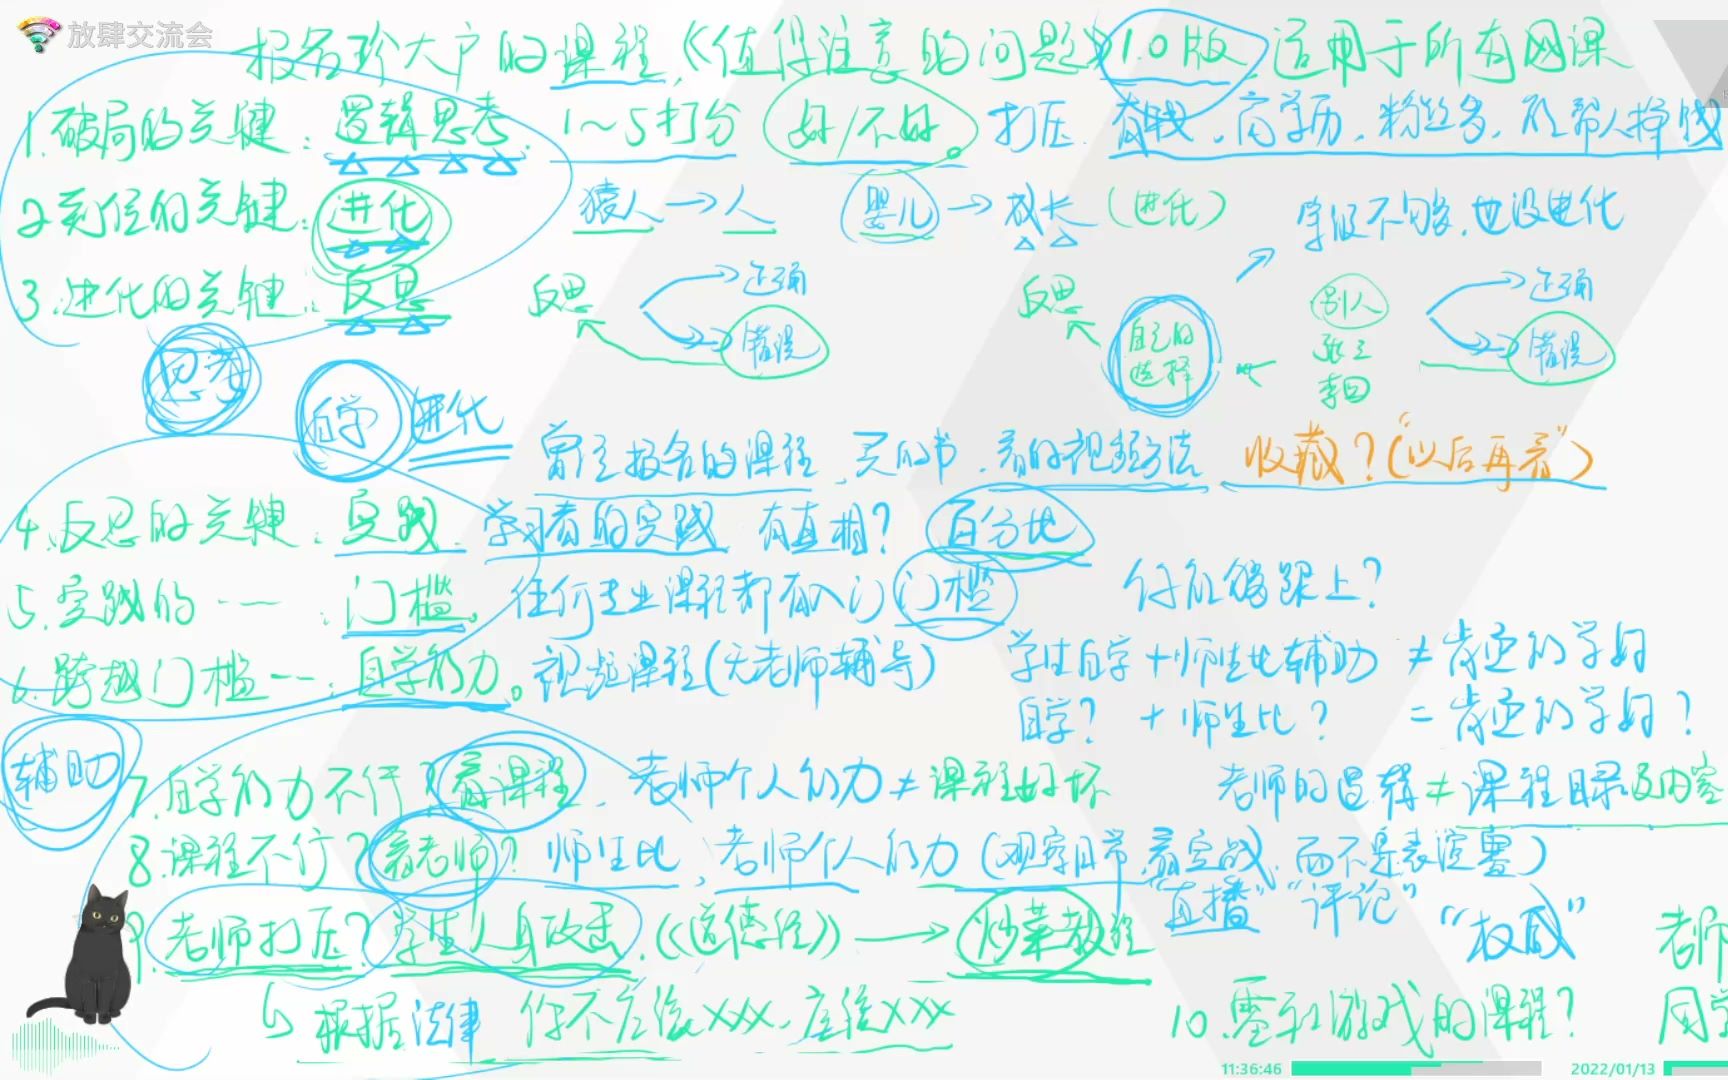 放肆交流会
报名珍大户的课程,《值得注意的问题》1.0版 适用于所有网课
1.破局的关键:逻辑思考. 1~5打分 好/不好。打压. 有钱.高学历.粉丝多.能帮人挣钱
2.到位的关键:进化 猿人→人 婴儿→成长(进化) 学历不够.也没进化
3.进化的关键:反思 反思 正确 错误 反思 自己的选择 别人 张三 李四 正确 错误
思考 自学 进化
曾经报名的课程,买的书.看的视频方法 收藏?(“以后再看”)
4.反思的关键:实践. 学习者的实践 有真相? 百分比
5.实践的……:门槛。任何专业课程都有入门门槛 你能够跟上?
6.跨越门槛……:自学能力。视频课程(无老师辅导) 学生自学+师生比辅助≠肯定能学好
自学? +师生比? =肯定能学好?
辅助
7.自学能力不行?看课程. 老师个人能力≠课程好坏 老师的逻辑≠课程目录及内容
8.课程不行?看老师? 师生比,老师个人能力(观察日常.看实战.而不是表演赛)
“直播”“评论”“权威”
9.老师打压?学生人身攻击.《道德经》→炒菜教程 老师
根据法律 你不应该xxx.应该xxx 10.
11:36:46 2022/01/13